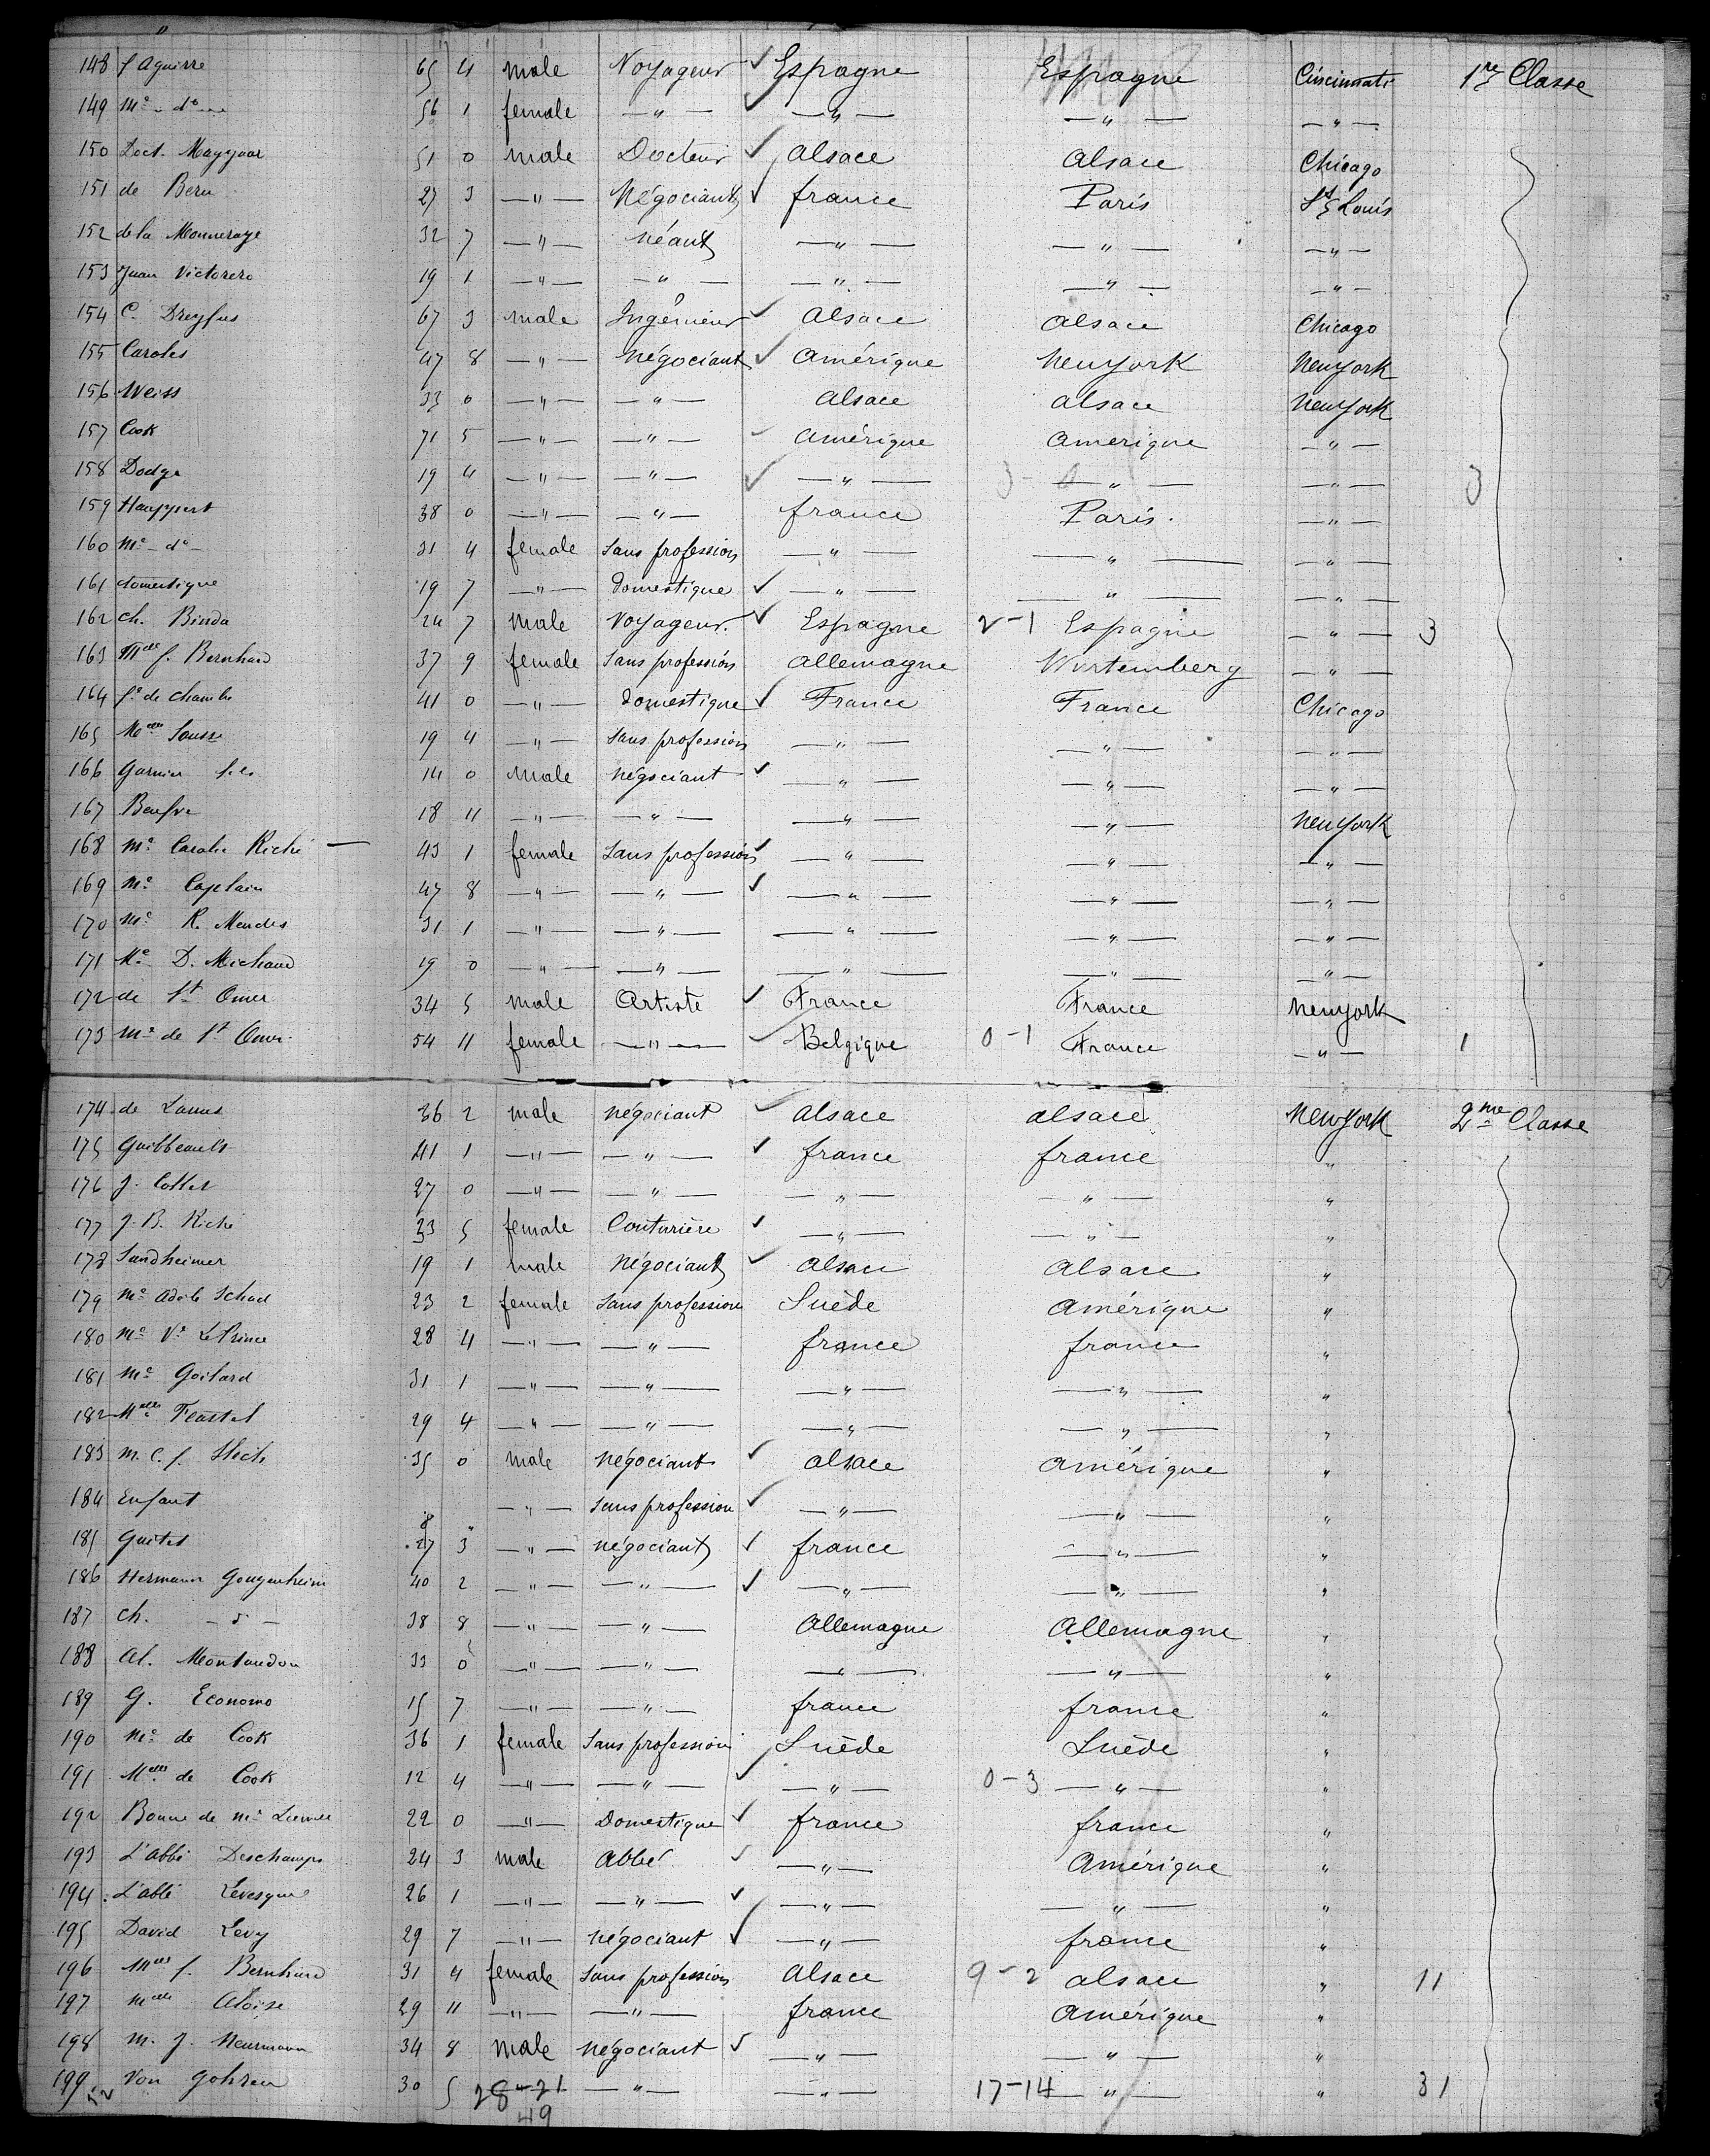 148 f Aguirre 65 4 male Voyageur ✓ Espagne Espagne Cincinnati 1re Classe
149 Me - do - 56 1 female — " — ✓ — " — — " — — " —
150 Doct. Mayguar 51 0 male Docteur ✓ Alsace Alsace Chicago
151 de Beru 27 3 — " — Négociant ✓ france Paris St Louis
152 de la Monneraye 32 7 — " — néant — " — — " — — " —
153 Juan Victorero 19 1 — " — — " — — " — — " — — " —
154 C. Dreyfus 67 3 male Ingénieur ✓ Alsace Alsace Chicago
155 Caroles 47 8 — " — négociant ✓ Amérique Newyork Newyork
156 Weiss 33 0 — " — — " — Alsace Alsace Newyork
157 Cook 71 5 — " — — " — ✓ Amérique Amerique — " —
158 Dodge 19 4 — " — — " — ✓ — " — 3 - 0 — " — — " — 3
159 Hauppert 38 0 — " — — " — france Paris. — " —
160 Me - do - 31 4 female Sans profession — " — — " — — " —
161 domestique 19 7 — " — Domestique ✓ — " — — " — — " —
162 Ch. Binda 24 7 male Voyageur. ✓ Espagne 2 - 1 Espagne — " — 3
163 Melle f. Bernhard 37 9 female Sans profession Allemagne Wurtemberg — " —
164 fe de chambe 41 0 — " — Domestique ✓ France France Chicago
165 Melle Sousse 19 4 — " — Sans profession — " — — " — — " —
166 Garnier fils 14 0 male négociant ✓ — " — — " — — " —
167 18 11 — " — — " — — " — — " — Newyork
168 Me Carolie Riché — 43 1 female Sans profession ✓ — " — — " — — " —
169 Me Caplain 47 8 — " — — " — ✓ — " — — " — — " —
170 Me R. Mendes 31 1 — " — — " — — " — — " — — " —
171 Me D. Michaud 19 0 — " — — " — — " — — " — — " —
172 de St Omer 34 5 male Artiste ✓ France France Newyork
173 Me de St Omer 54 11 female — " — ✓ Belgique 0 - 1 France — " — 1
174 de Lamus 36 2 male négociant ✓ Alsace alsace Newyork 2me Classe
175 Guibbeault 41 1 — " — — " — ✓ france france "
176 J. Cotter 27 0 — " — — " — — " — — " — "
177 J. B. Riché 33 5 female Couturière ✓ — " — — " — "
178 Sandheimer 19 1 male Négociant ✓ Alsace Alsace "
179 Me Adele Schad 23 2 female Sans profession Suède Amérique "
180 Me Ve Le Prince 28 4 — " — — " — france france "
181 Me Goilard 31 1 — " — — " — — " — — " — "
182 Melle 29 4 — " — — " — — " — — " — "
183 m. C. f. 35 0 male Négociant ✓ alsace Amérique "
184 Enfant 8 " — " — Sans profession ✓ — " — — " — "
185 Guitet 27 3 — " — négociant ✓ france — " — "
186 Hermann Gougenheim 40 2 — " — — " — ✓ — " — — " — "
187 Ch. — do — 38 8 — " — — " — Allemagne Allemagne "
188 Al. Montandon 33 0 — " — — " — — " — — " — "
189 G. Economo 15 7 — " — — " — france france "
190 Me de Cook 36 1 female Sans profession Suède Suède "
191 Melle de Cook 12 4 — " — — " — ✓ — " — 0 - 3 — " — "
192 Bonne de Me 22 0 — " — Domestique ✓ france france "
193 L'abbé Deschamps 24 3 male Abbé ✓ — " — Amérique "
194 L'abbé Levesque 26 1 — " — — " — ✓ — " — — " — "
195 David Levy 29 7 — " — négociant ✓ — " — france "
196 Melle f. Bernhard 31 4 female Sans profession Alsace 9 - 2 alsace " 11
197 Melle Aloise 29 11 — " — — " — france Amérique "
198 m. J. Neurmann 34 8 male négociant ✓ — " — — " — "
199 Von Gohren 30 5 28 - 21 — " — — " — 17 - 14 — " — " 31
49